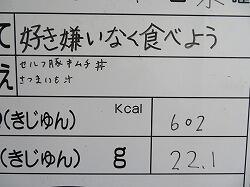 て 好き嫌いなく食べよう
え セルフ豚キムチ丼
さつまいも汁
Kcal
(きじゅん) 602
(きじゅん) g 22.1